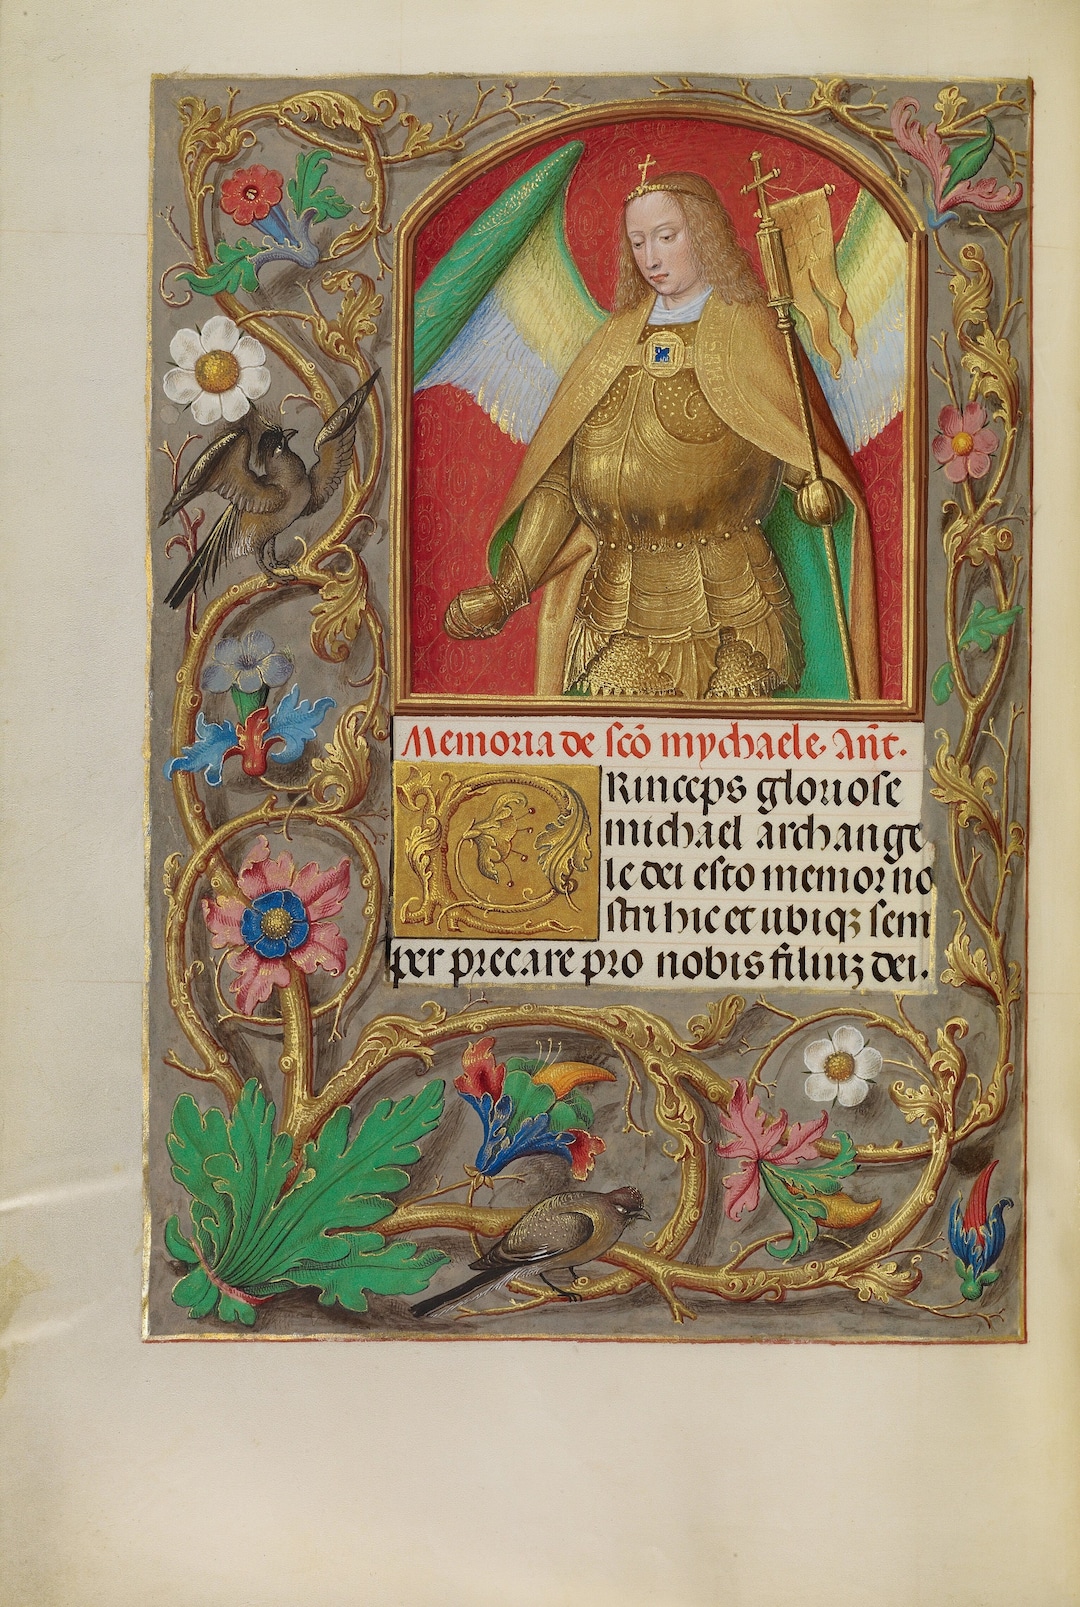 Memoria de sc̄o mychaele. An̄t.
PRinceps gloriose
michael archange
le dei esto memor no
stri hic et ubiqꝫ sem
per precare pro nobis filiuꝫ dei.